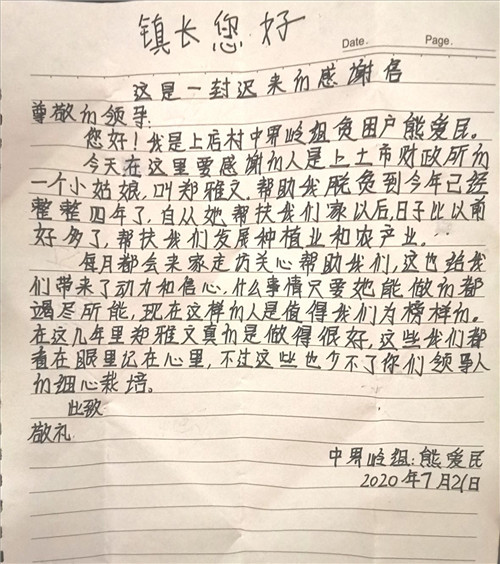 镇长您好
Date. Page.
这是一封迟来的感谢信
尊敬的领导:
您好!我是上店村中界岭组贫困户熊爱民。
今天在这里要感谢的人是上土市财政所的
一个小姑娘,叫郑雅文,帮助我脱贫到今年已经
整整四年了,自从她帮扶我们家以后,日子比以前
好多了,帮扶我们发展种植业和农产业。
每月都会来家走访关心帮助我们,这也给我
们带来了动力和信心,什么事情只要她能做的都
竭尽所能,现在这样的人是值得我们为榜样的。
在这几年里郑雅文真的是做得很好,这些我们都
看在眼里记在心里,不过这些也少不了你们领导人
的细心栽培。
此致
敬礼
中界岭组:熊爱民
2020年7月21日